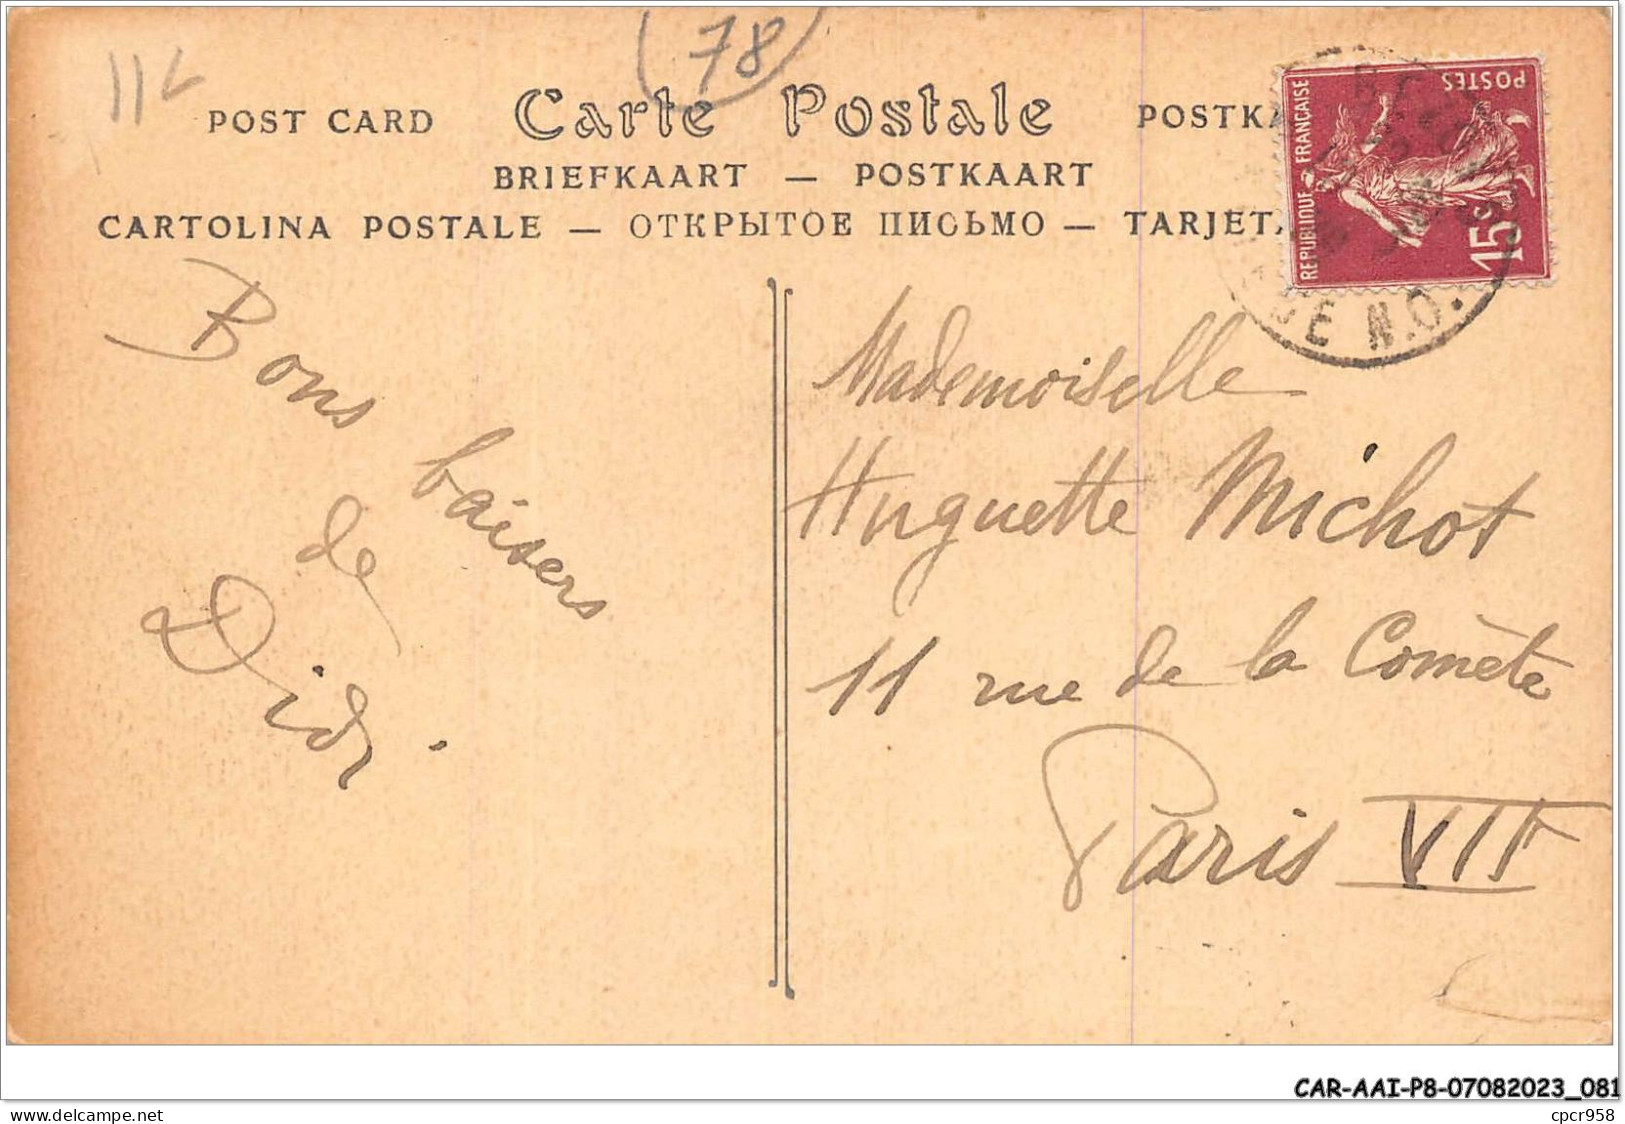 11
78
POST CARD Carte Postale POSTKA
BRIEFKAART — POSTKAART
CARTOLINA POSTALE — ОТКРЫТОЕ ПИСЬМО — TARJET
REPUBLIQUE FRANÇAISE
POSTES
15c
E N.O.
Bons
baisers
de
Didi.
Mademoiselle
Huguette Michot
11 rue de la Comète
Paris VII
CAR-AAI-P8-07082023_081
www.delcampe.net
cpcr958